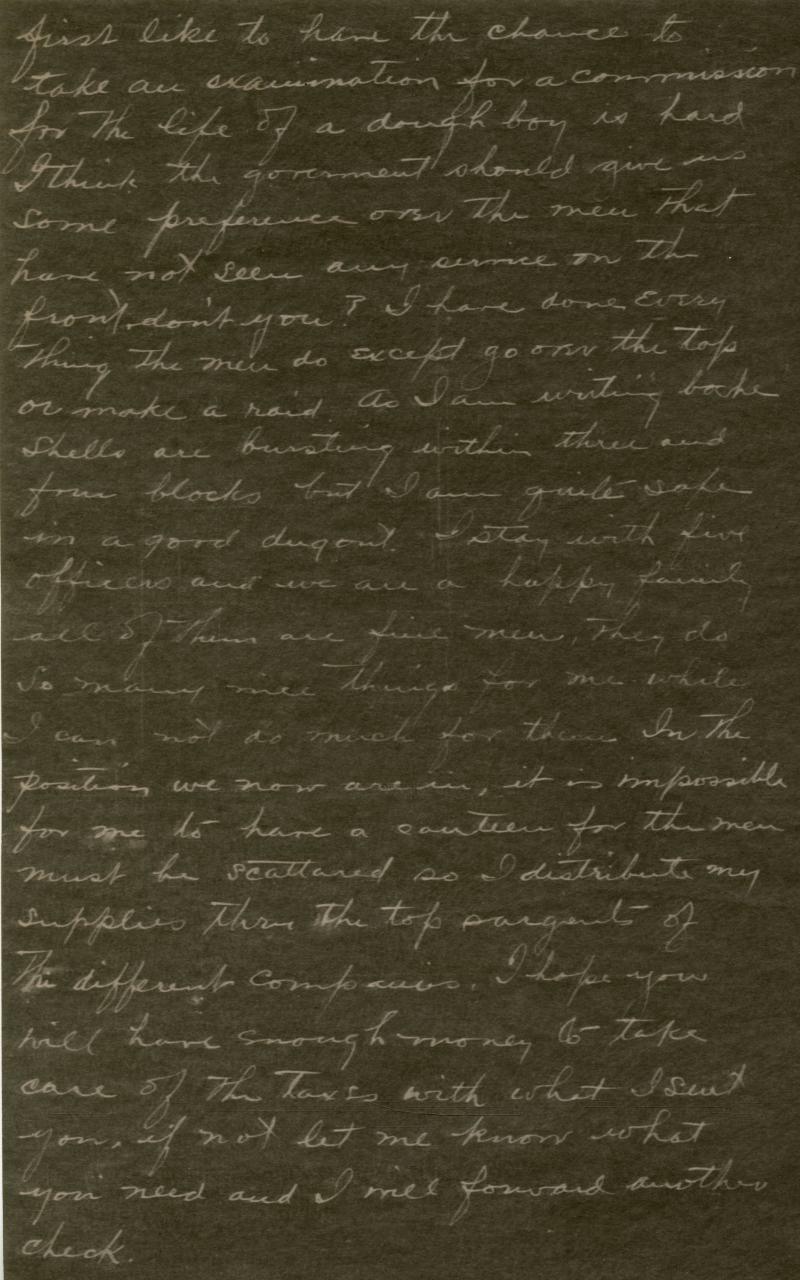 first like to have the chance to
take an examination for a commission
for the life of a dough boy is hard
I think the goverment should give us
some preference over the men that
have not seen any service on the
front, don't you? I have done Every
thing the men do except go over the top
or make a raid. As I am writing boche
shells are bursting within three and
four blocks but I am quite safe
in a good dugout. I stay with five
officers and we are a happy family
all of them are fine men, they do
so many nice things for me while
I can not do much for them In the
position we now are in, it is impossible
for me to have a canteen for the men
must be scattared so I distribute my
supplies thru the top sargents of
the different companies. I hope you
will have enough money to take
care of the taxes with what I sent
you, if not let me know what
you need and I will forward another
check.